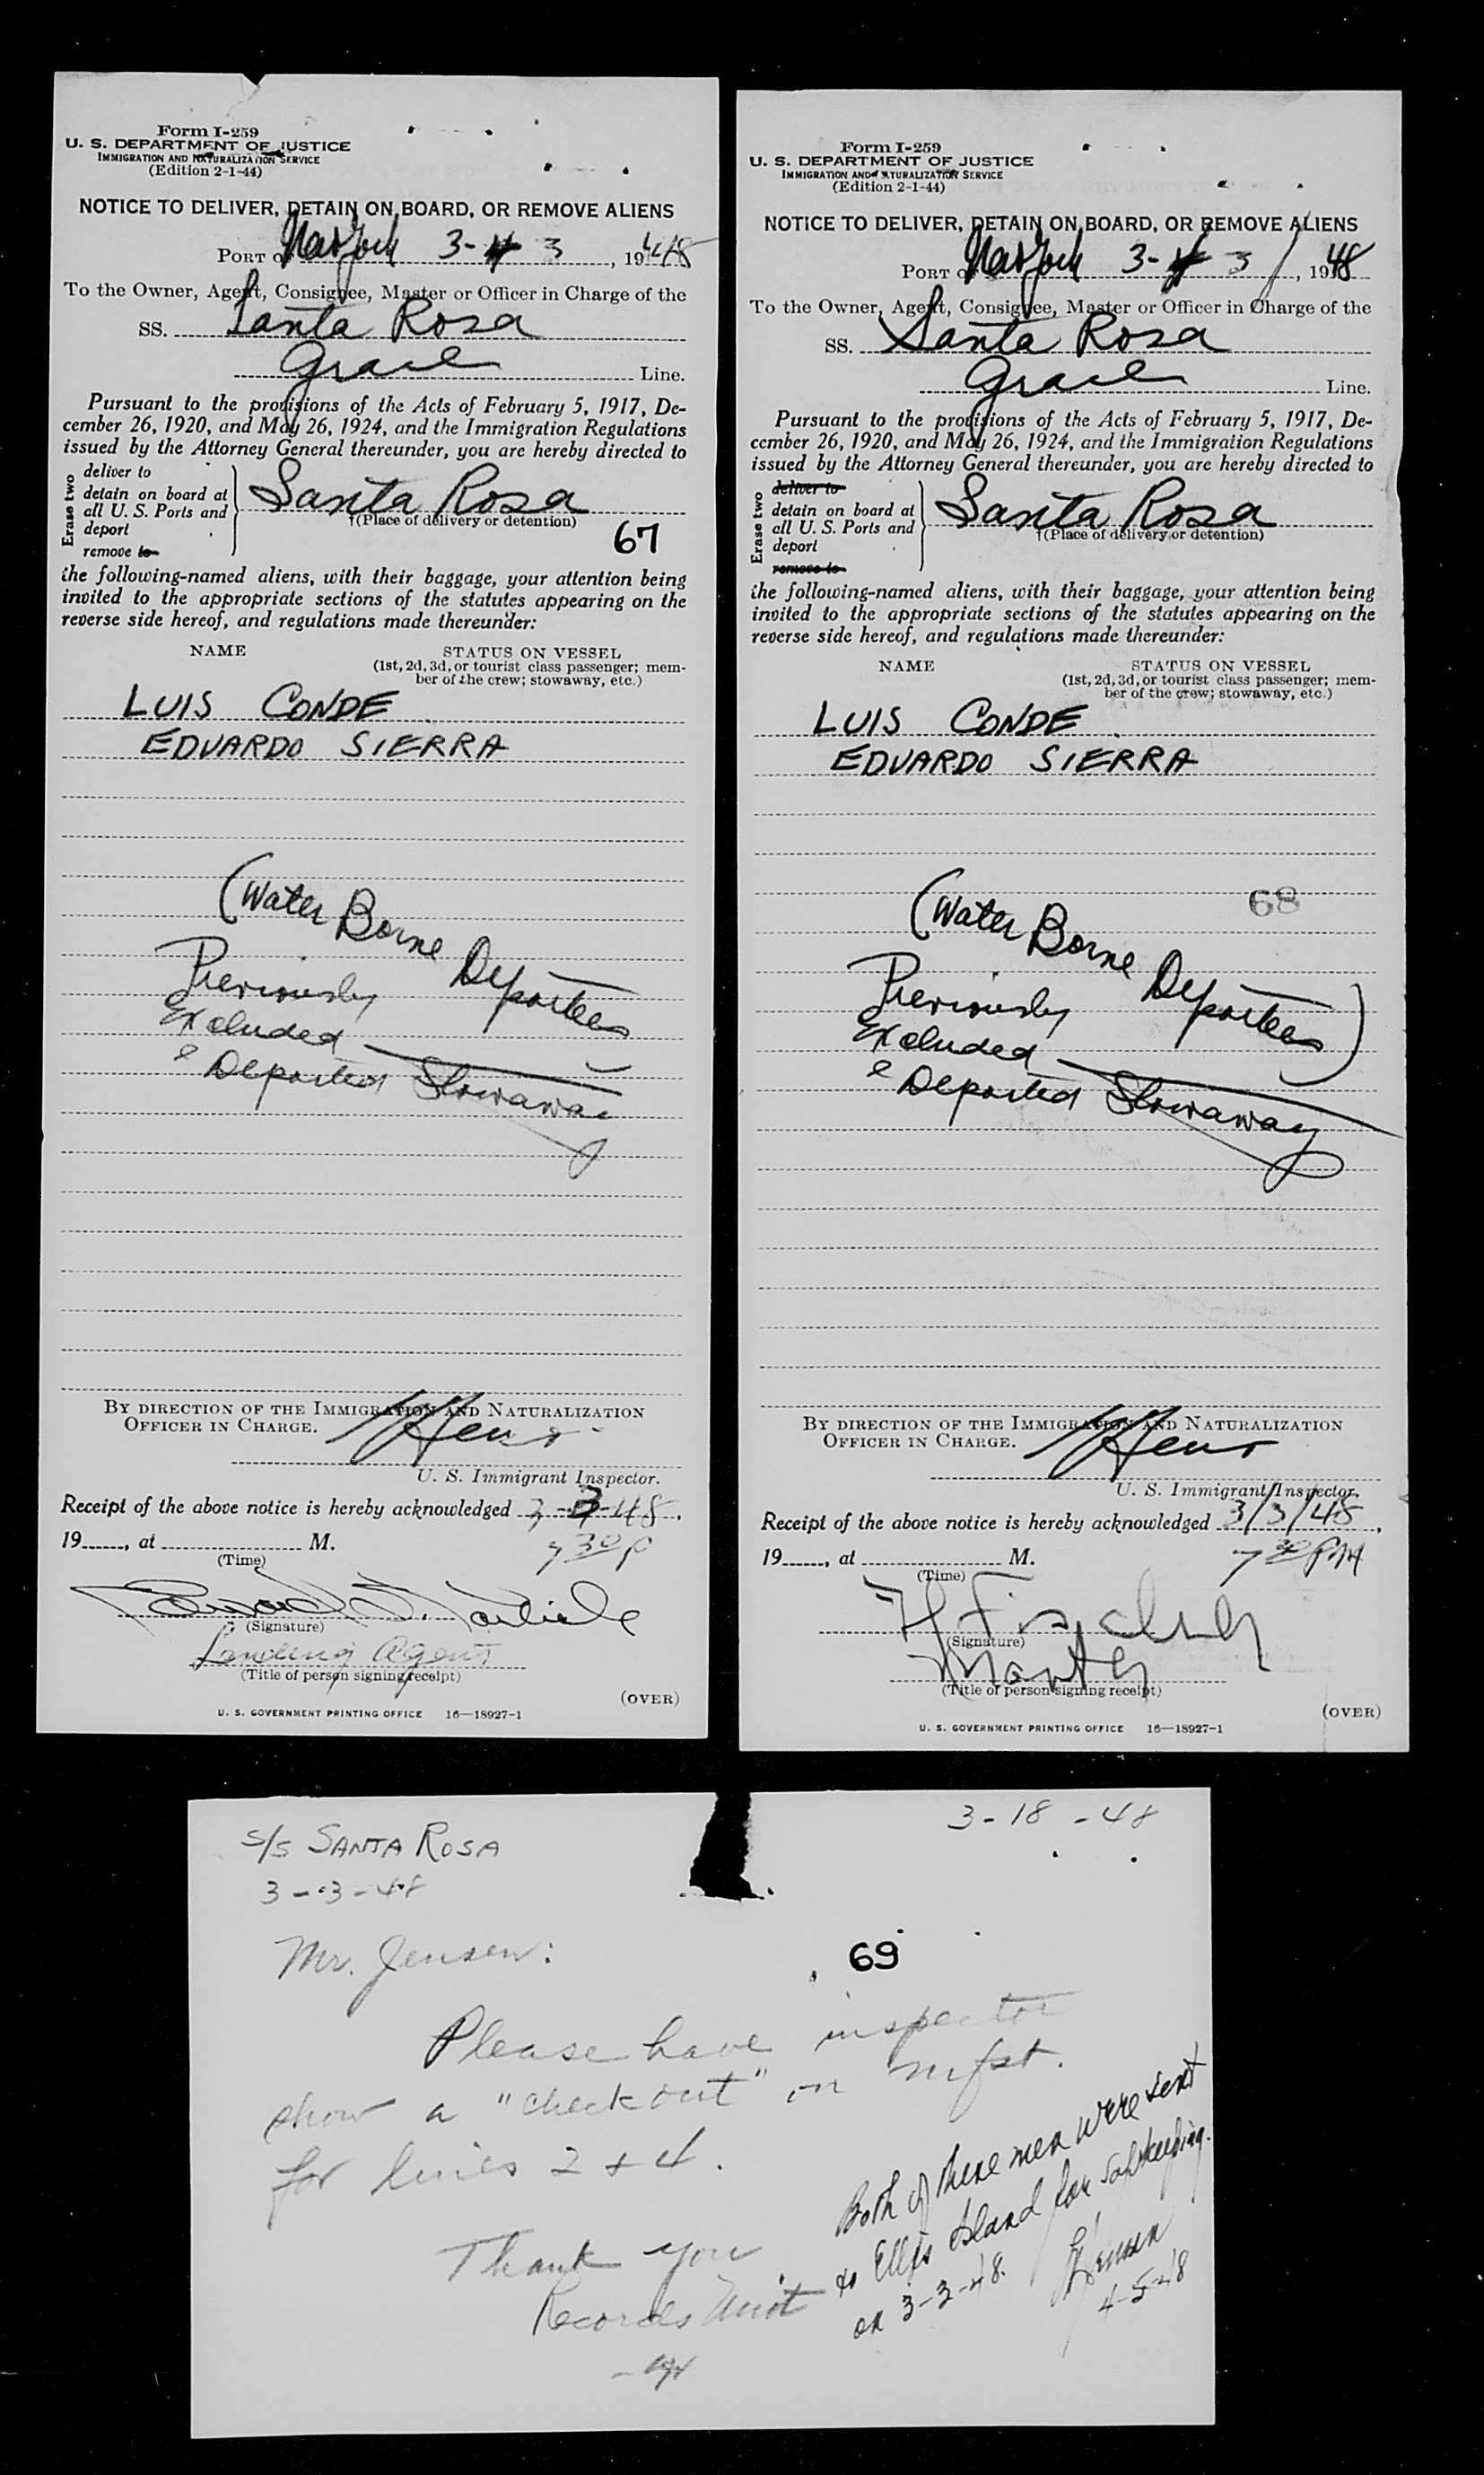 Form I-259
U. S. DEPARTMENT OF JUSTICE
IMMIGRATION AND NATURALIZATION SERVICE
(Edition 2-1-44)
NOTICE TO DELIVER, DETAIN ON BOARD, OR REMOVE ALIENS
PORT of New York 3-4 3, 1948
To the Owner, Agent, Consignee, Master or Officer in Charge of the
SS. Santa Rosa
Grace Line.
Pursuant to the provisions of the Acts of February 5, 1917, De-
cember 26, 1920, and May 26, 1924, and the Immigration Regulations
issued by the Attorney General thereunder, you are hereby directed to
Erase two
deliver to
detain on board at
all U. S. Ports and
deport
remove to
Santa Rosa
†(Place of delivery or detention)
67
the following-named aliens, with their baggage, your attention being
invited to the appropriate sections of the statutes appearing on the
reverse side hereof, and regulations made thereunder:
NAME STATUS ON VESSEL
(1st, 2d, 3d, or tourist class passenger; mem-
ber of the crew; stowaway, etc.)
LUIS CONDE
EDUARDO SIERRA
(Water Borne Deportees
Previously
Excluded
& Deported Stowaway
BY DIRECTION OF THE IMMIGRATION AND NATURALIZATION
OFFICER IN CHARGE.
U. S. Immigrant Inspector.
Receipt of the above notice is hereby acknowledged 3-3-48.
19____, at ____ M. 7 30 P
(Time)
(Signature)
Landing Agent
(Title of person signing receipt)
(OVER)
U. S. GOVERNMENT PRINTING OFFICE 16—18927-1
Form I-259
U. S. DEPARTMENT OF JUSTICE
IMMIGRATION AND NATURALIZATION SERVICE
(Edition 2-1-44)
NOTICE TO DELIVER, DETAIN ON BOARD, OR REMOVE ALIENS
PORT of New York 3-4 3/, 1948
To the Owner, Agent, Consignee, Master or Officer in Charge of the
SS. Santa Rosa
Grace Line.
Pursuant to the provisions of the Acts of February 5, 1917, De-
cember 26, 1920, and May 26, 1924, and the Immigration Regulations
issued by the Attorney General thereunder, you are hereby directed to
Erase two
deliver to
detain on board at
all U. S. Ports and
deport
remove to
Santa Rosa
†(Place of delivery or detention)
the following-named aliens, with their baggage, your attention being
invited to the appropriate sections of the statutes appearing on the
reverse side hereof, and regulations made thereunder:
NAME STATUS ON VESSEL
(1st, 2d, 3d, or tourist class passenger; mem-
ber of the crew; stowaway, etc.)
LUIS CONDE
EDUARDO SIERRA
68
(Water Borne Deportees)
Previously
Excluded
& Deported Stowaway
BY DIRECTION OF THE IMMIGRATION AND NATURALIZATION
OFFICER IN CHARGE.
U. S. Immigrant Inspector.
Receipt of the above notice is hereby acknowledged 3/3/48.
19____, at ____ M. 7 30 PM
(Time)
(Signature)
Master
(Title of person signing receipt)
(OVER)
U. S. GOVERNMENT PRINTING OFFICE 16—18927-1
3-18-48
S/S SANTA ROSA
3-3-48
Mr. Jensen:
69
Please have inspector
show a "check out" on mfst.
for lines 2 + 4.
Thank you
Records Unit
Both of these men were sent
to Ellis Island for safekeeping.
on 3-3-48.
4-5-48